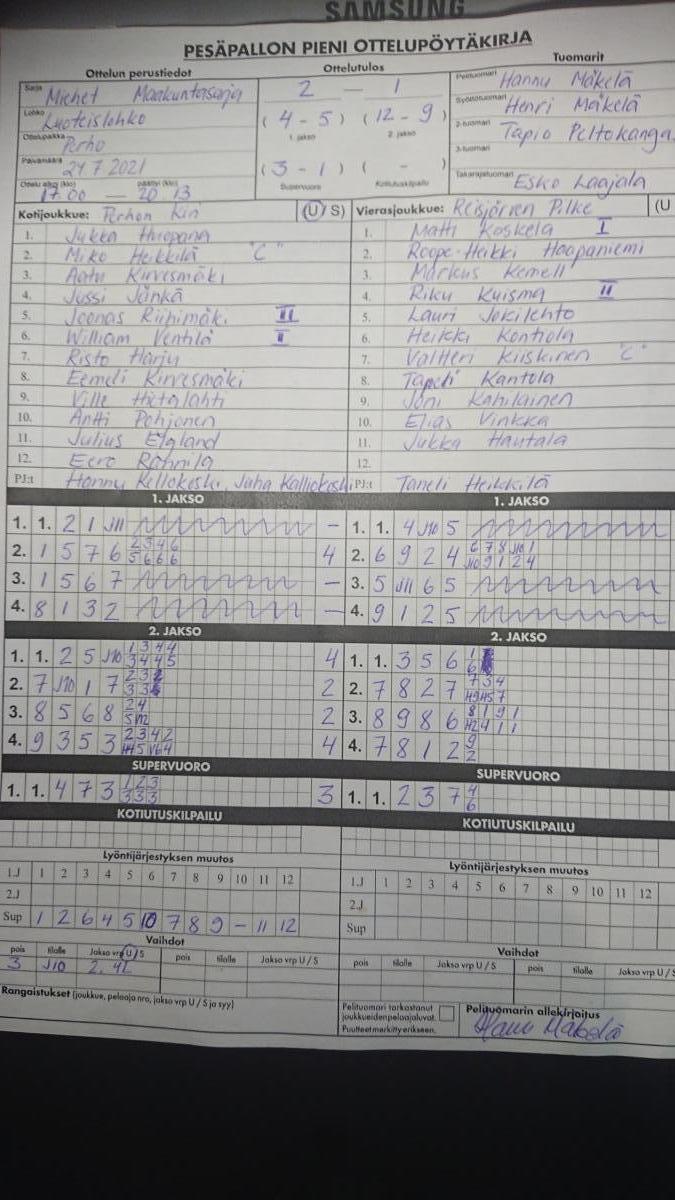 SAMSUNG
PESÄPALLON PIENI OTTELUPÖYTÄKIRJA
Ottelun perustiedot
Ottelutulos
Tuomarit
Sarja Miehet Maakuntasarja
2 – 1
Pelituomari Hannu Mäkelä
Lohko Luoteislohko
( 4 - 5 ) ( 12 - 9 )
1. jakso 2. jakso
Syöttötuomari Henri Mäkelä
Ottelupaikka Perho
2-tuomari Tapio Peltokangas
Päivämäärä 24 7 2021
( 3 - 1 ) ( - )
Supervuoro Kotiutuskilpailu
3-tuomari
Ottelu alkoi (klo) 17.00 – päättyi (klo) 20 13
Takarajatuomari Esko Laajala
Kotijoukkue: Perhon Kiri (U/ S)
Vierasjoukkue: Reisjärven Pilke (U
1. Jukka Huopana
1. Matti Koskela I
2. Miko Heikkilä "C"
2. Roope-Heikki Haapaniemi
3. Aatu Kirvesmäki
3. Markus Kemell
4. Jussi Jänkä
4. Riku Kuisma II
5. Joonas Riihimäki II
5. Lauri Jokilehto
6. William Ventilä I
6. Heikki Kontiola
7. Risto Harju
7. Valtteri Kiiskinen "C"
8. Eemeli Kirvesmäki
8. Kantola
9. Ville Hietalahti
9. Joni Kahilainen
10. Antti Pohjonen
10. Elias Vinkka
11. Julius Elgland
11. Jukka Hautala
12. Eero
12.
PJ:t Hannu Kellokoski, Juha Kalliokoski
PJ:t Taneli Heikkilä
1. JAKSO
1. JAKSO
1. 1. 2 1 JII –
1. 1. 4 J10 5
2. 1 5 7 6 2 3 4 6 5 6 6 6 4
2. 6 9 2 4 6 7 8 J10 1 J10 9 1 2 4
3. 1 5 6 7 –
3. 5 JII 6 5
4. 8 1 3 2 –
4. 9 1 2 5
2. JAKSO
2. JAKSO
1. 1. 2 5 J10 1 3 4 4 3 4 4 5 4
1. 1. 3 5 6 1 6
2. 7 J10 1 7 2 3 3 3 2
2. 7 8 2 7 7 3 4
3. 8 5 6 8 2 4 2
3. 8 9 8 6 8 1 9 1
4. 9 3 5 3 2 3 4 2 4
4. 7 8 1 2 9 2
SUPERVUORO
SUPERVUORO
1. 1. 4 7 3 1 2 3 3 3 3 3
1. 1. 2 3 7 4 6
KOTIUTUSKILPAILU
KOTIUTUSKILPAILU
Lyöntijärjestyksen muutos
Lyöntijärjestyksen muutos
1.J 1 2 3 4 5 6 7 8 9 10 11 12
1.J 1 2 3 4 5 6 7 8 9 10 11 12
2.J
2.J
Sup 1 2 6 4 5 10 7 8 9 – 11 12
Sup
Vaihdot
Vaihdot
pois tilalle Jakso vrp U / S pois tilalle Jakso vrp U / S
pois tilalle Jakso vrp U / S pois tilalle Jakso vrp U / S
3 J10 2. 4L
Rangaistukset (joukkue, pelaaja nro, jakso vrp U / S ja syy)
Pelituomari tarkastanut joukkueiden pelaajaluvat.
Puutteet merkitty erikseen.
Pelituomarin allekirjoitus
Hannu Mäkelä